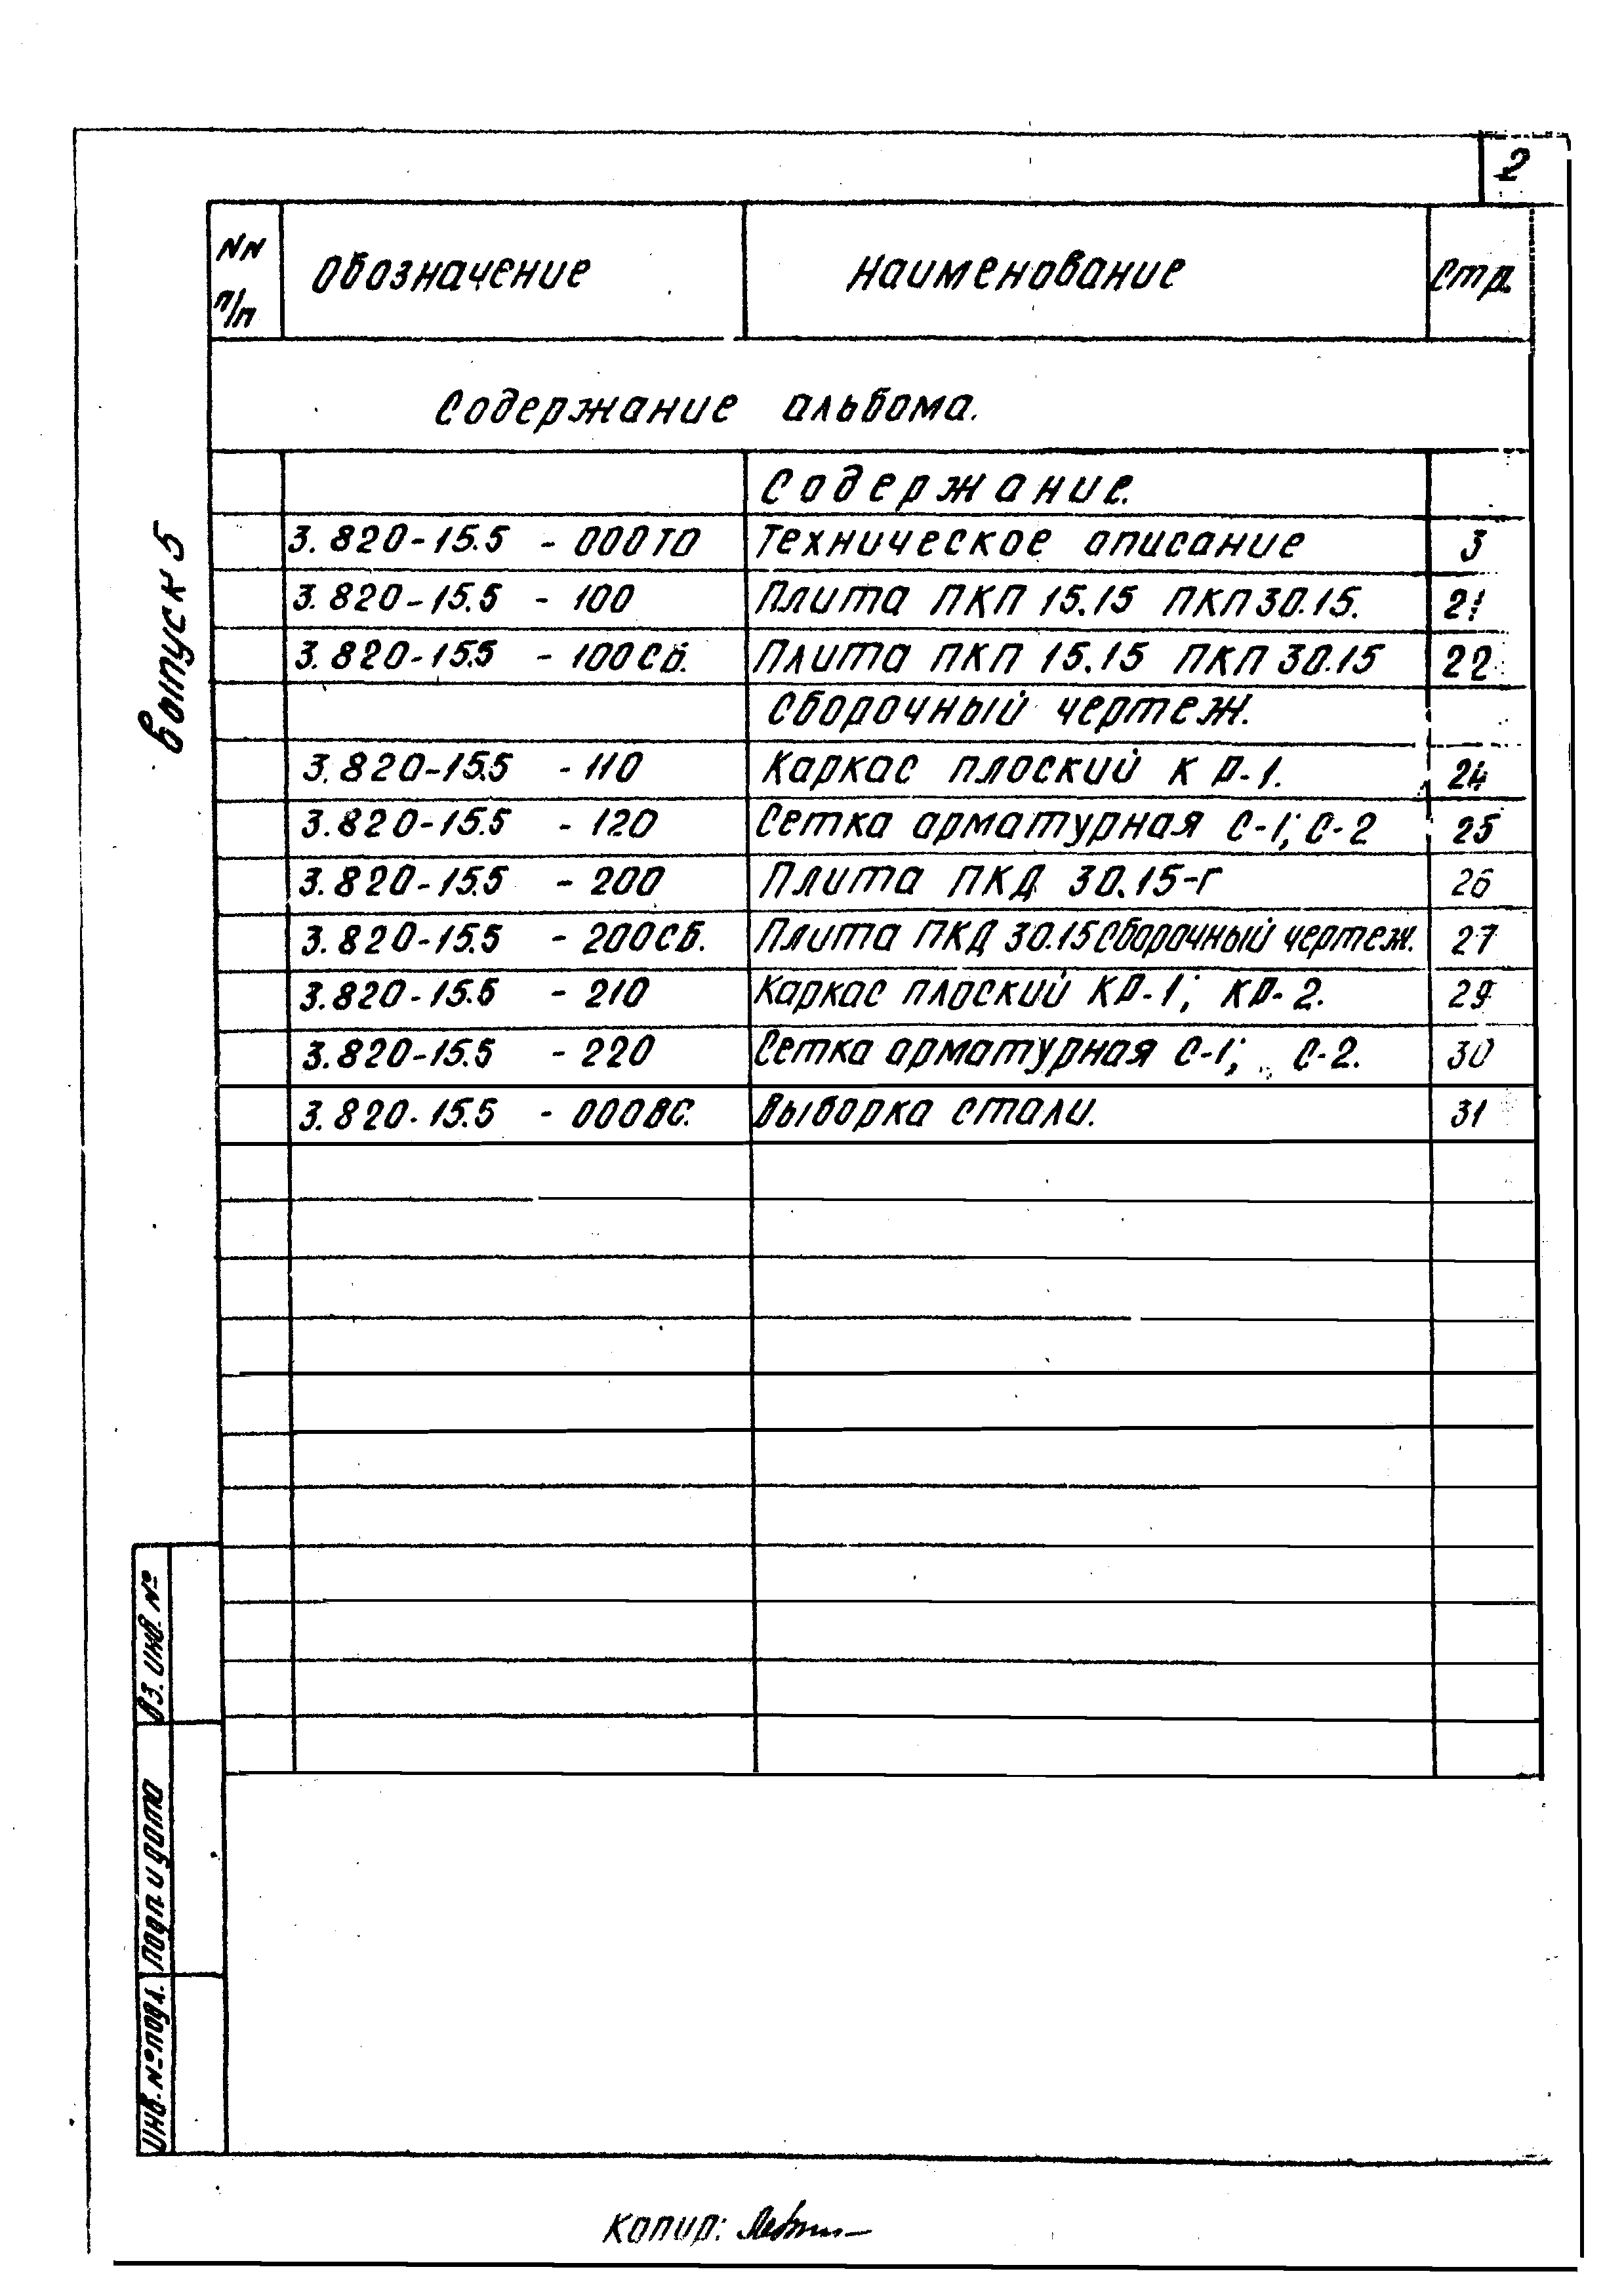 2
NN п/п Обозначение Наименование Стр.
Содержание альбома.
Содержание.
3.820-15.5 - 000ТО Техническое описание 3
3.820-15.5 - 100 Плита ПКП 15.15 ПКП 30.15. 21
3.820-15.5 - 100СБ. Плита ПКП 15.15 ПКП 30.15 22
Сборочный чертеж.
3.820-15.5 - 110 Каркас плоский К Р-1. 24
3.820-15.5 - 120 Сетка арматурная С-1; С-2 25
3.820-15.5 - 200 Плита ПКД 30.15-г 26
3.820-15.5 - 200СБ. Плита ПКД 30.15 Сборочный чертеж. 27
3.820-15.5 - 210 Каркас плоский КР-1; КР-2. 29
3.820-15.5 - 220 Сетка арматурная С-1; С-2. 30
3.820-15.5 - 000ВС. Выборка стали. 31
Выпуск 5
Вз. инв. №
Подп. и дата
Инв. № подл.
Копир: